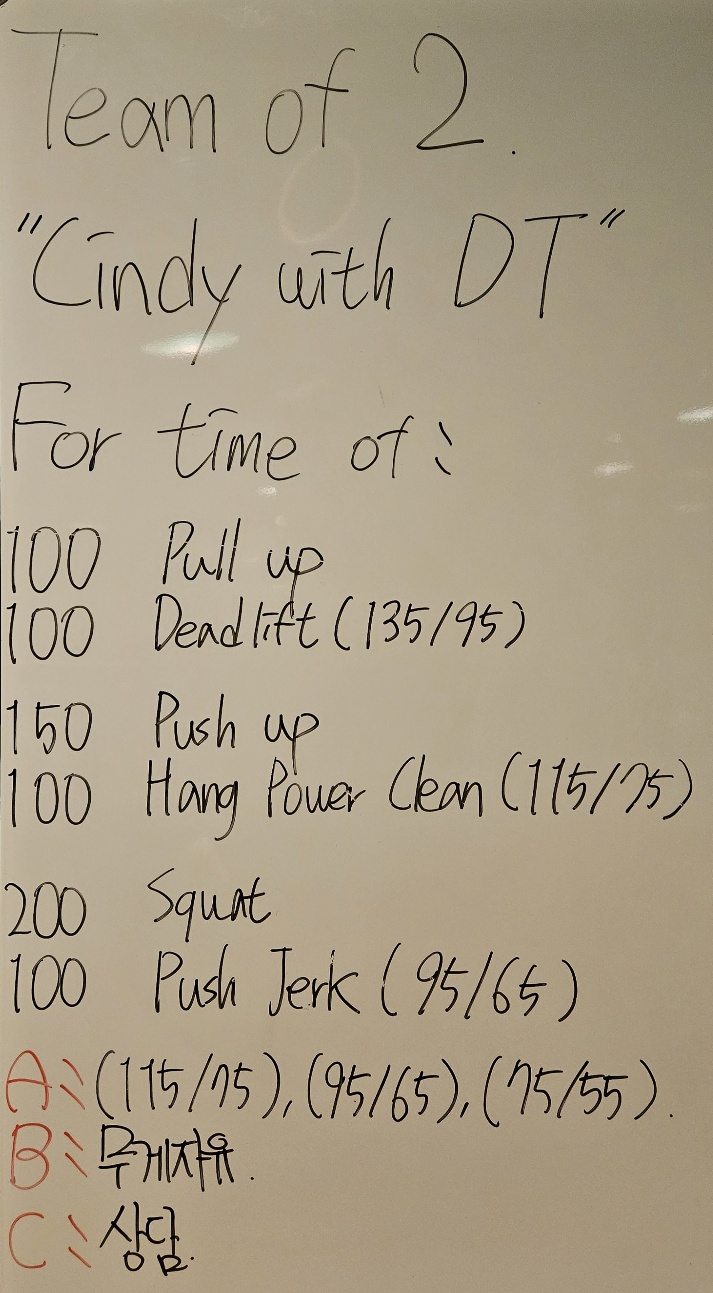 Team of 2.
"Cindy with DT"
For time of :
100 Pull up
100 Deadlift (135/95)
150 Push up
100 Hang Power Clean (115/75)
200 Squat
100 Push Jerk (95/65)
A: (115/75), (95/65), (75/55).
B: 무게자유.
C: 상담.